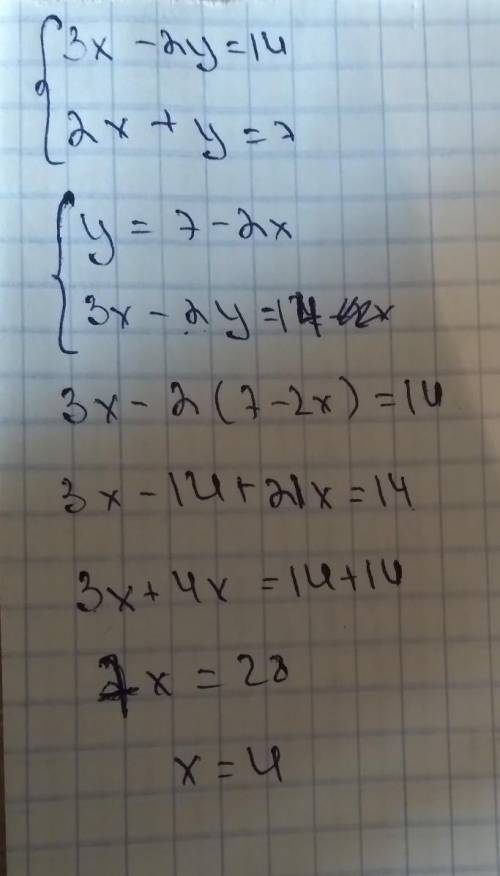 3x - 2y = 14
2x + y = 7
y = 7 - 2x
3x - 2y = 14
3x - 2(7 - 2x) = 14
3x - 14 + 4x = 14
3x + 4x = 14 + 14
7x = 28
x = 4